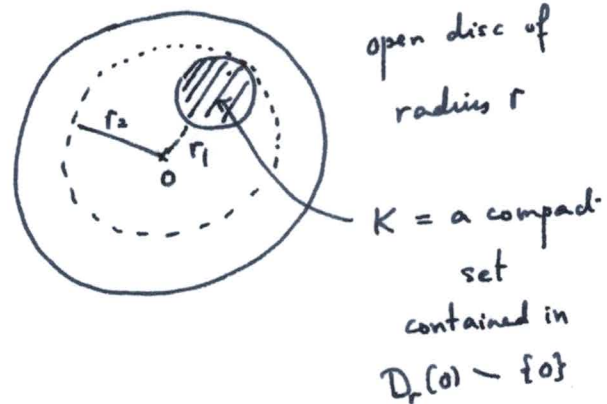 open disc of
radius r
r₂
r₁
0
K = a compact
set
contained in
Dᵣ(0) ∖ {0}